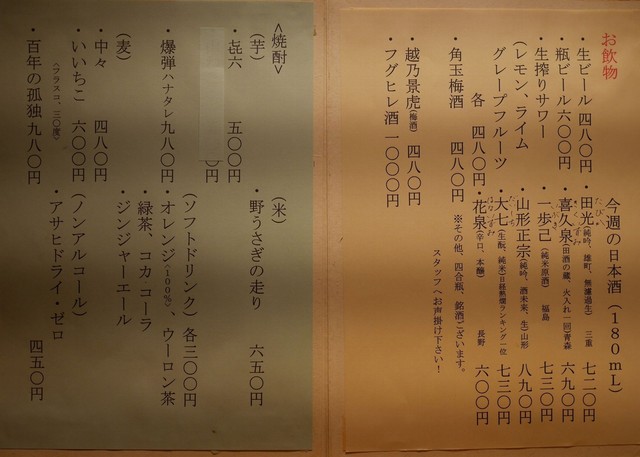 お飲物
・生ビール 四八〇円
・瓶ビール 六〇〇円
・生搾りサワー
(レモン、ライム
グレープフルーツ
各 四八〇円
・角玉梅酒 四八〇円
・越乃景虎(梅酒) 四八〇円
・フグヒレ酒 一〇〇〇円
今週の日本酒(180mL)
・田光(純吟、雄町、無濾過生) 三重 七二〇円
・喜久泉(田酒の蔵、火入れ一回)青森 六九〇円
・一歩己(純米原酒) 福島 七三〇円
・山形正宗(純吟、酒未来、生)山形 八九〇円
・大七(生酛、純米)日経熱燗ランキング一位 七三〇円
・花泉(辛口、本醸) 長野 六〇〇円
※その他、四合瓶、銘酒ございます。
スタッフへお声掛け下さい!
<焼酎>
(芋)
・㐂六 五〇〇円
〇円
・爆弾ハナタレ 九八〇円
(麦)
・中々 四八〇円
・いいちこ 六〇〇円
(フラスコ、三〇度)
・百年の孤独 九八〇円
(米)
・野うさぎの走り 六五〇円
(ソフトドリンク)各三〇〇円
・オレンジ(100%)、ウーロン茶
・緑茶、コカコーラ
・ジンジャーエール
(ノンアルコール)
・アサヒドライ・ゼロ 四五〇円